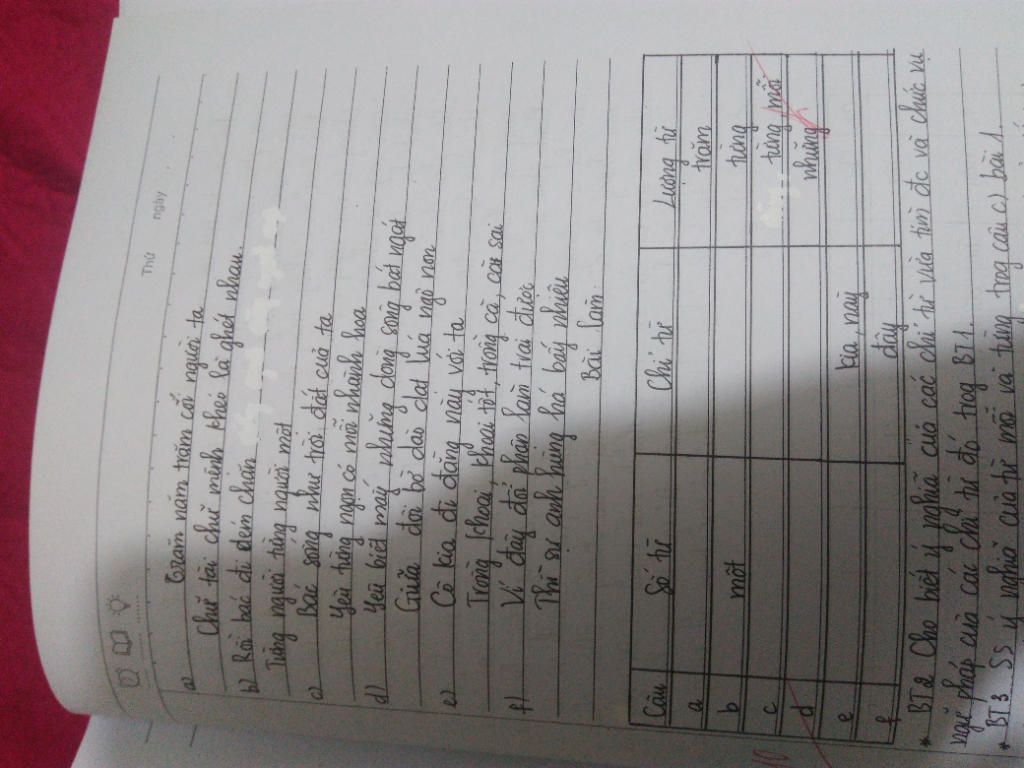 Thứ
ngày
a) Trăm năm trăm cõi người ta
Chữ tài chữ mệnh khéo là ghét nhau.
b) Rồi bác đi dém chăn
Từng người từng người một
c) Bác sống như trời đất của ta
Yêu từng ngọn cỏ mỗi nhành hoa
d) Yêu biết mấy những dòng sông bát ngát
Giữa đôi bờ dào dạt lúa ngô non
e) Cô kia đi đằng này với ta
Trồng khoai khoai tốt, trồng cà, cà sai
f) Ví đây đổi phận làm trai được
Thì sự anh hùng há bấy nhiêu
Bài làm
Câu Số từ Chỉ từ Lượng từ
a trăm
b một từng
c từng mỗi
d những
e kia, này
f đây
* BT2 Cho biết ý nghĩa của các chỉ từ vừa tìm đc và chức vụ
ngữ pháp của các chỉ từ đó trog BT1.
* BT3 SS ý nghĩa của từ mỗi và từng trog câu c) bài 1.